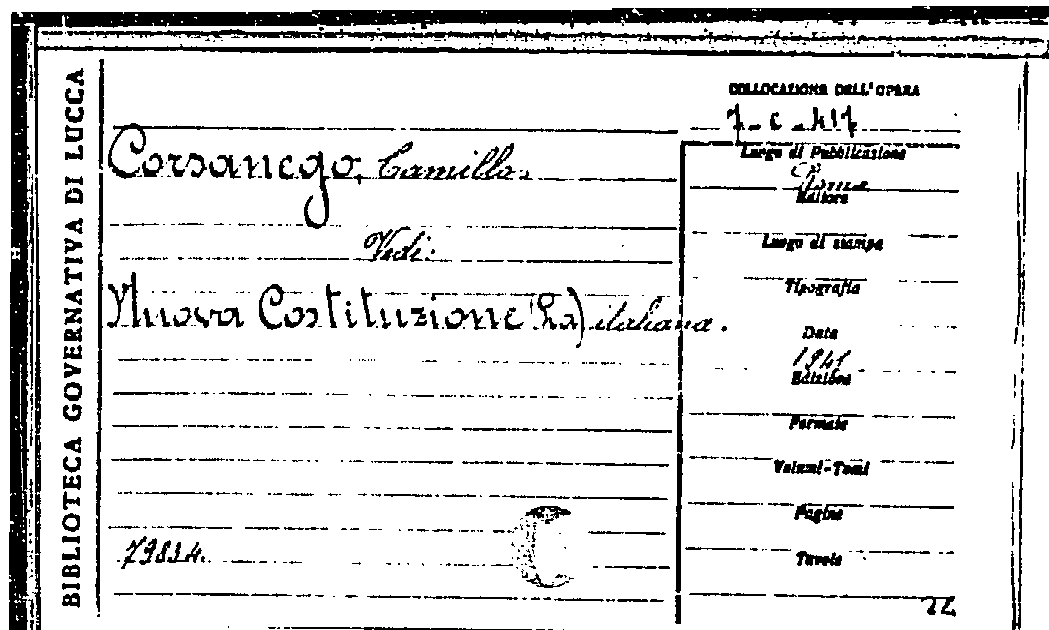 BIBLIOTECA GOVERNATIVA DI LUCCA
COLLOCAZIONE DELL'OPERA
Corsanego, Camillo.
Luogo di Pubblicazione
Roma
Editore
Vedi:
Luogo di stampa
Tipografia
Nuova Costituzione (La) italiana.
Data
Edizione
Formato
Volumi-Tomi
Pagine
Tavole
22